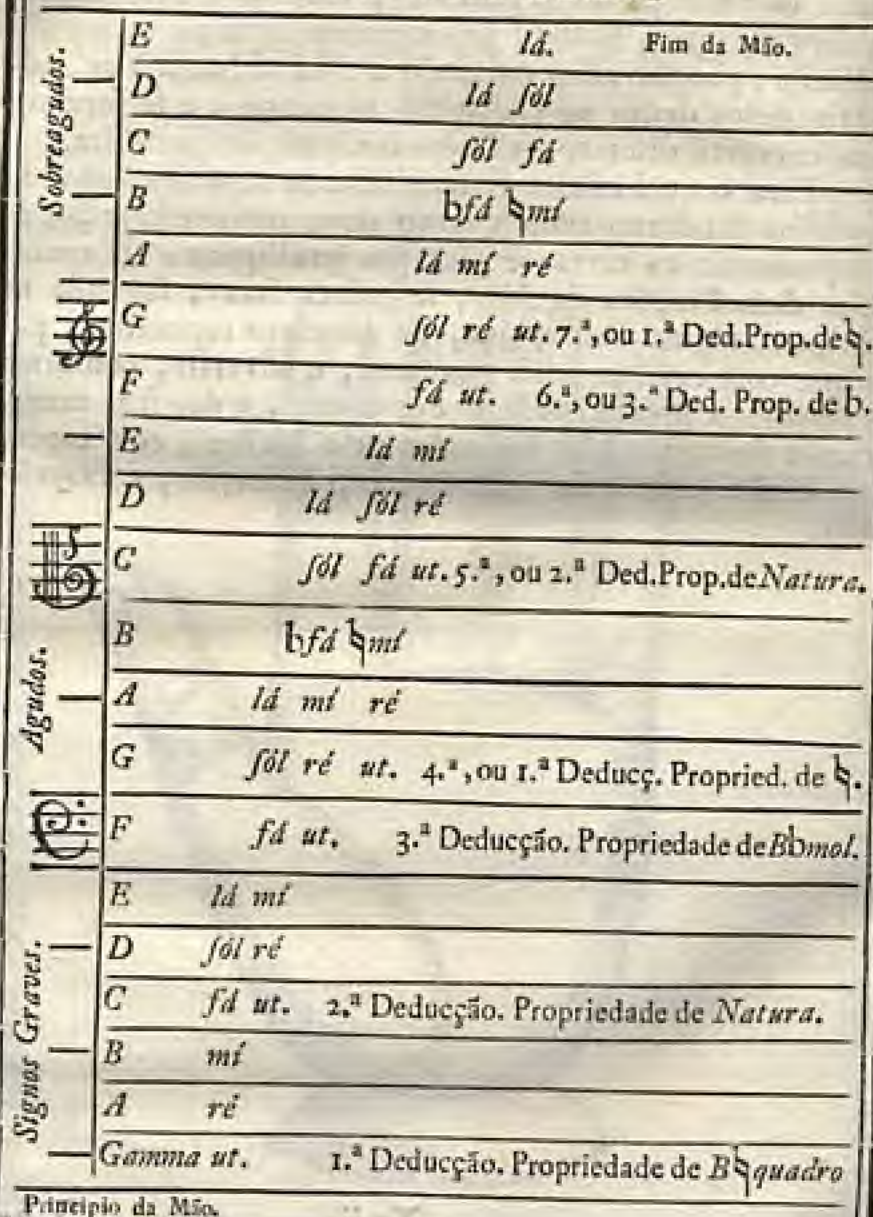 E lá. Fim da Mão.
D lá ſól
C ſól fá
B bfá ♮mí
A lá mí ré
G ſól ré ut. 7.ª, ou 1.ª Ded. Prop. de ♮.
F fá ut. 6.ª, ou 3.ª Ded. Prop. de b.
E lá mí
D lá ſól ré
C ſól fá ut. 5.ª, ou 2.ª Ded. Prop. de Natura.
B bfá ♮mí
A lá mí ré
G ſól ré ut. 4.ª, ou 1.ª Deducç. Propried. de ♮.
F fá ut. 3.ª Deducção. Propriedade de Bbmol.
E lá mí
D ſól ré
C fá ut. 2.ª Deducção. Propriedade de Natura.
B mí
A ré
Gamma ut. 1.ª Deducção. Propriedade de B♮quadro
Principio da Mão.
Sobreagudos.
Agudos.
Signos Graves.